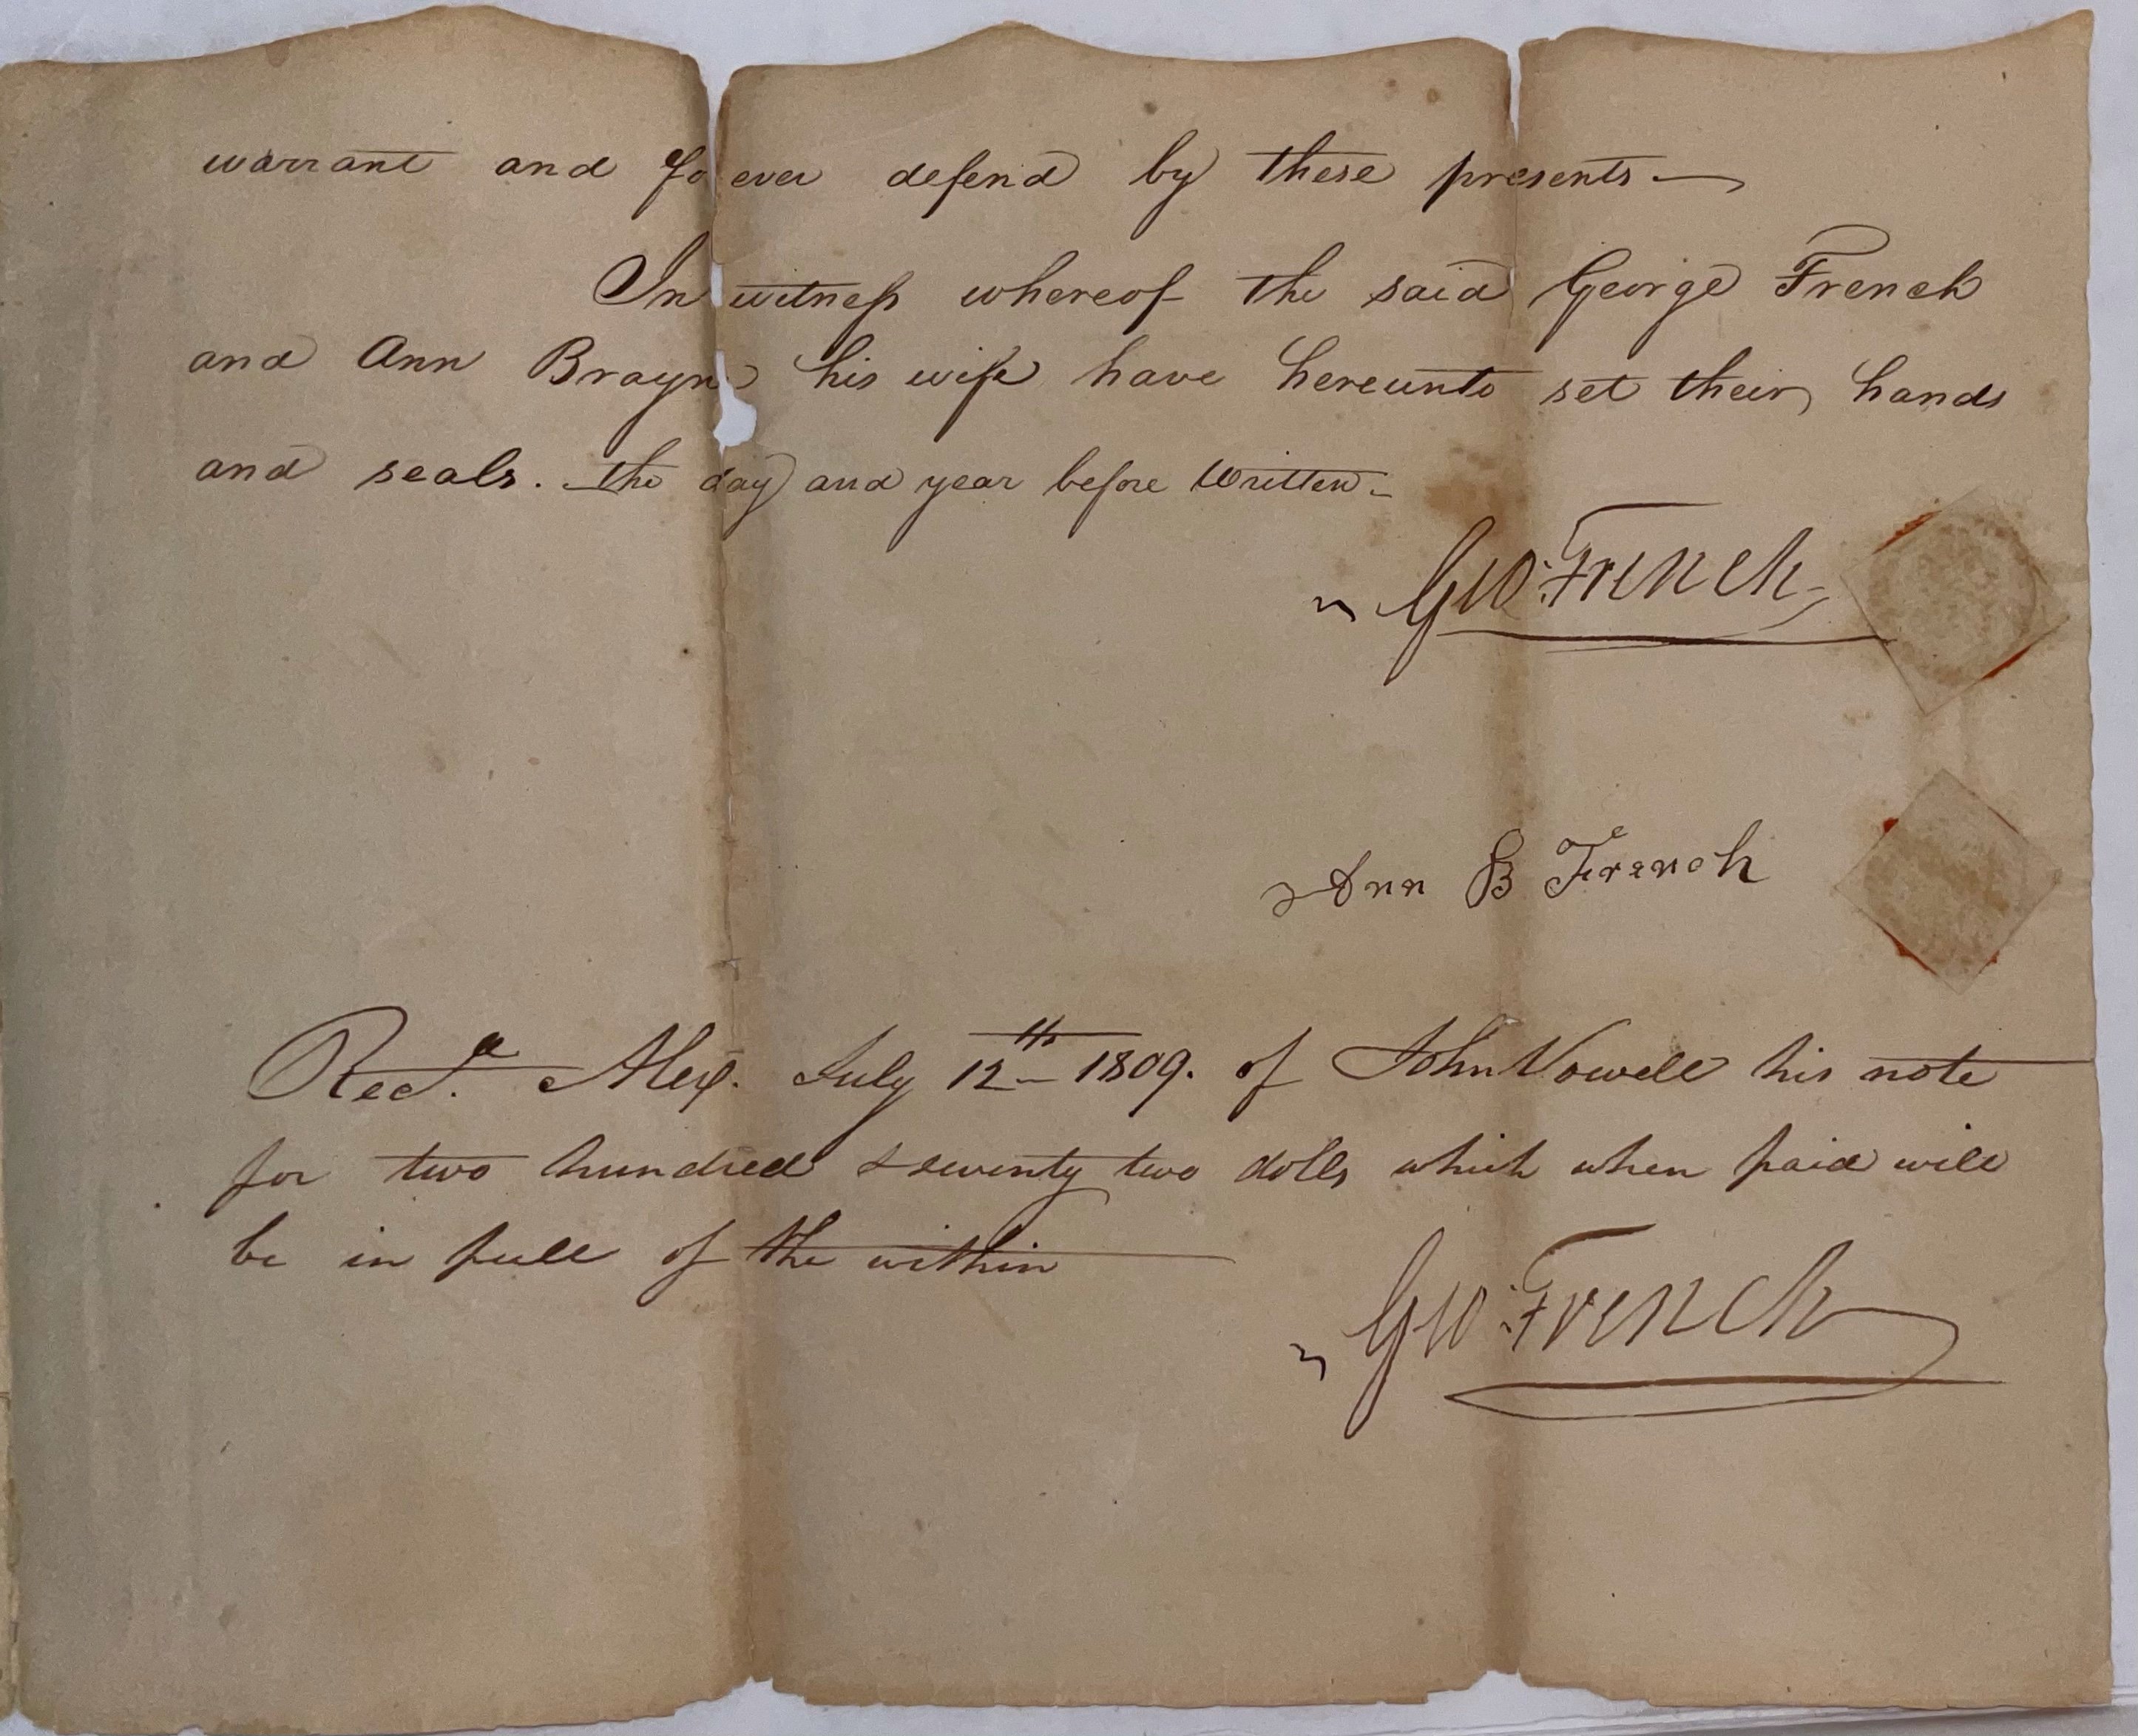 warrant and forever defend by these presents —
In witness whereof the said George French
and Ann Brayne his wife have hereunto set their hands
and seals. the day and year before Written. –
Geo: French
Ann B French
Recd. Alexa. July 12th 1809. of John Vowell his note
for two hundred & seventy two dolls which when paid will
be in full of the within
Geo: French